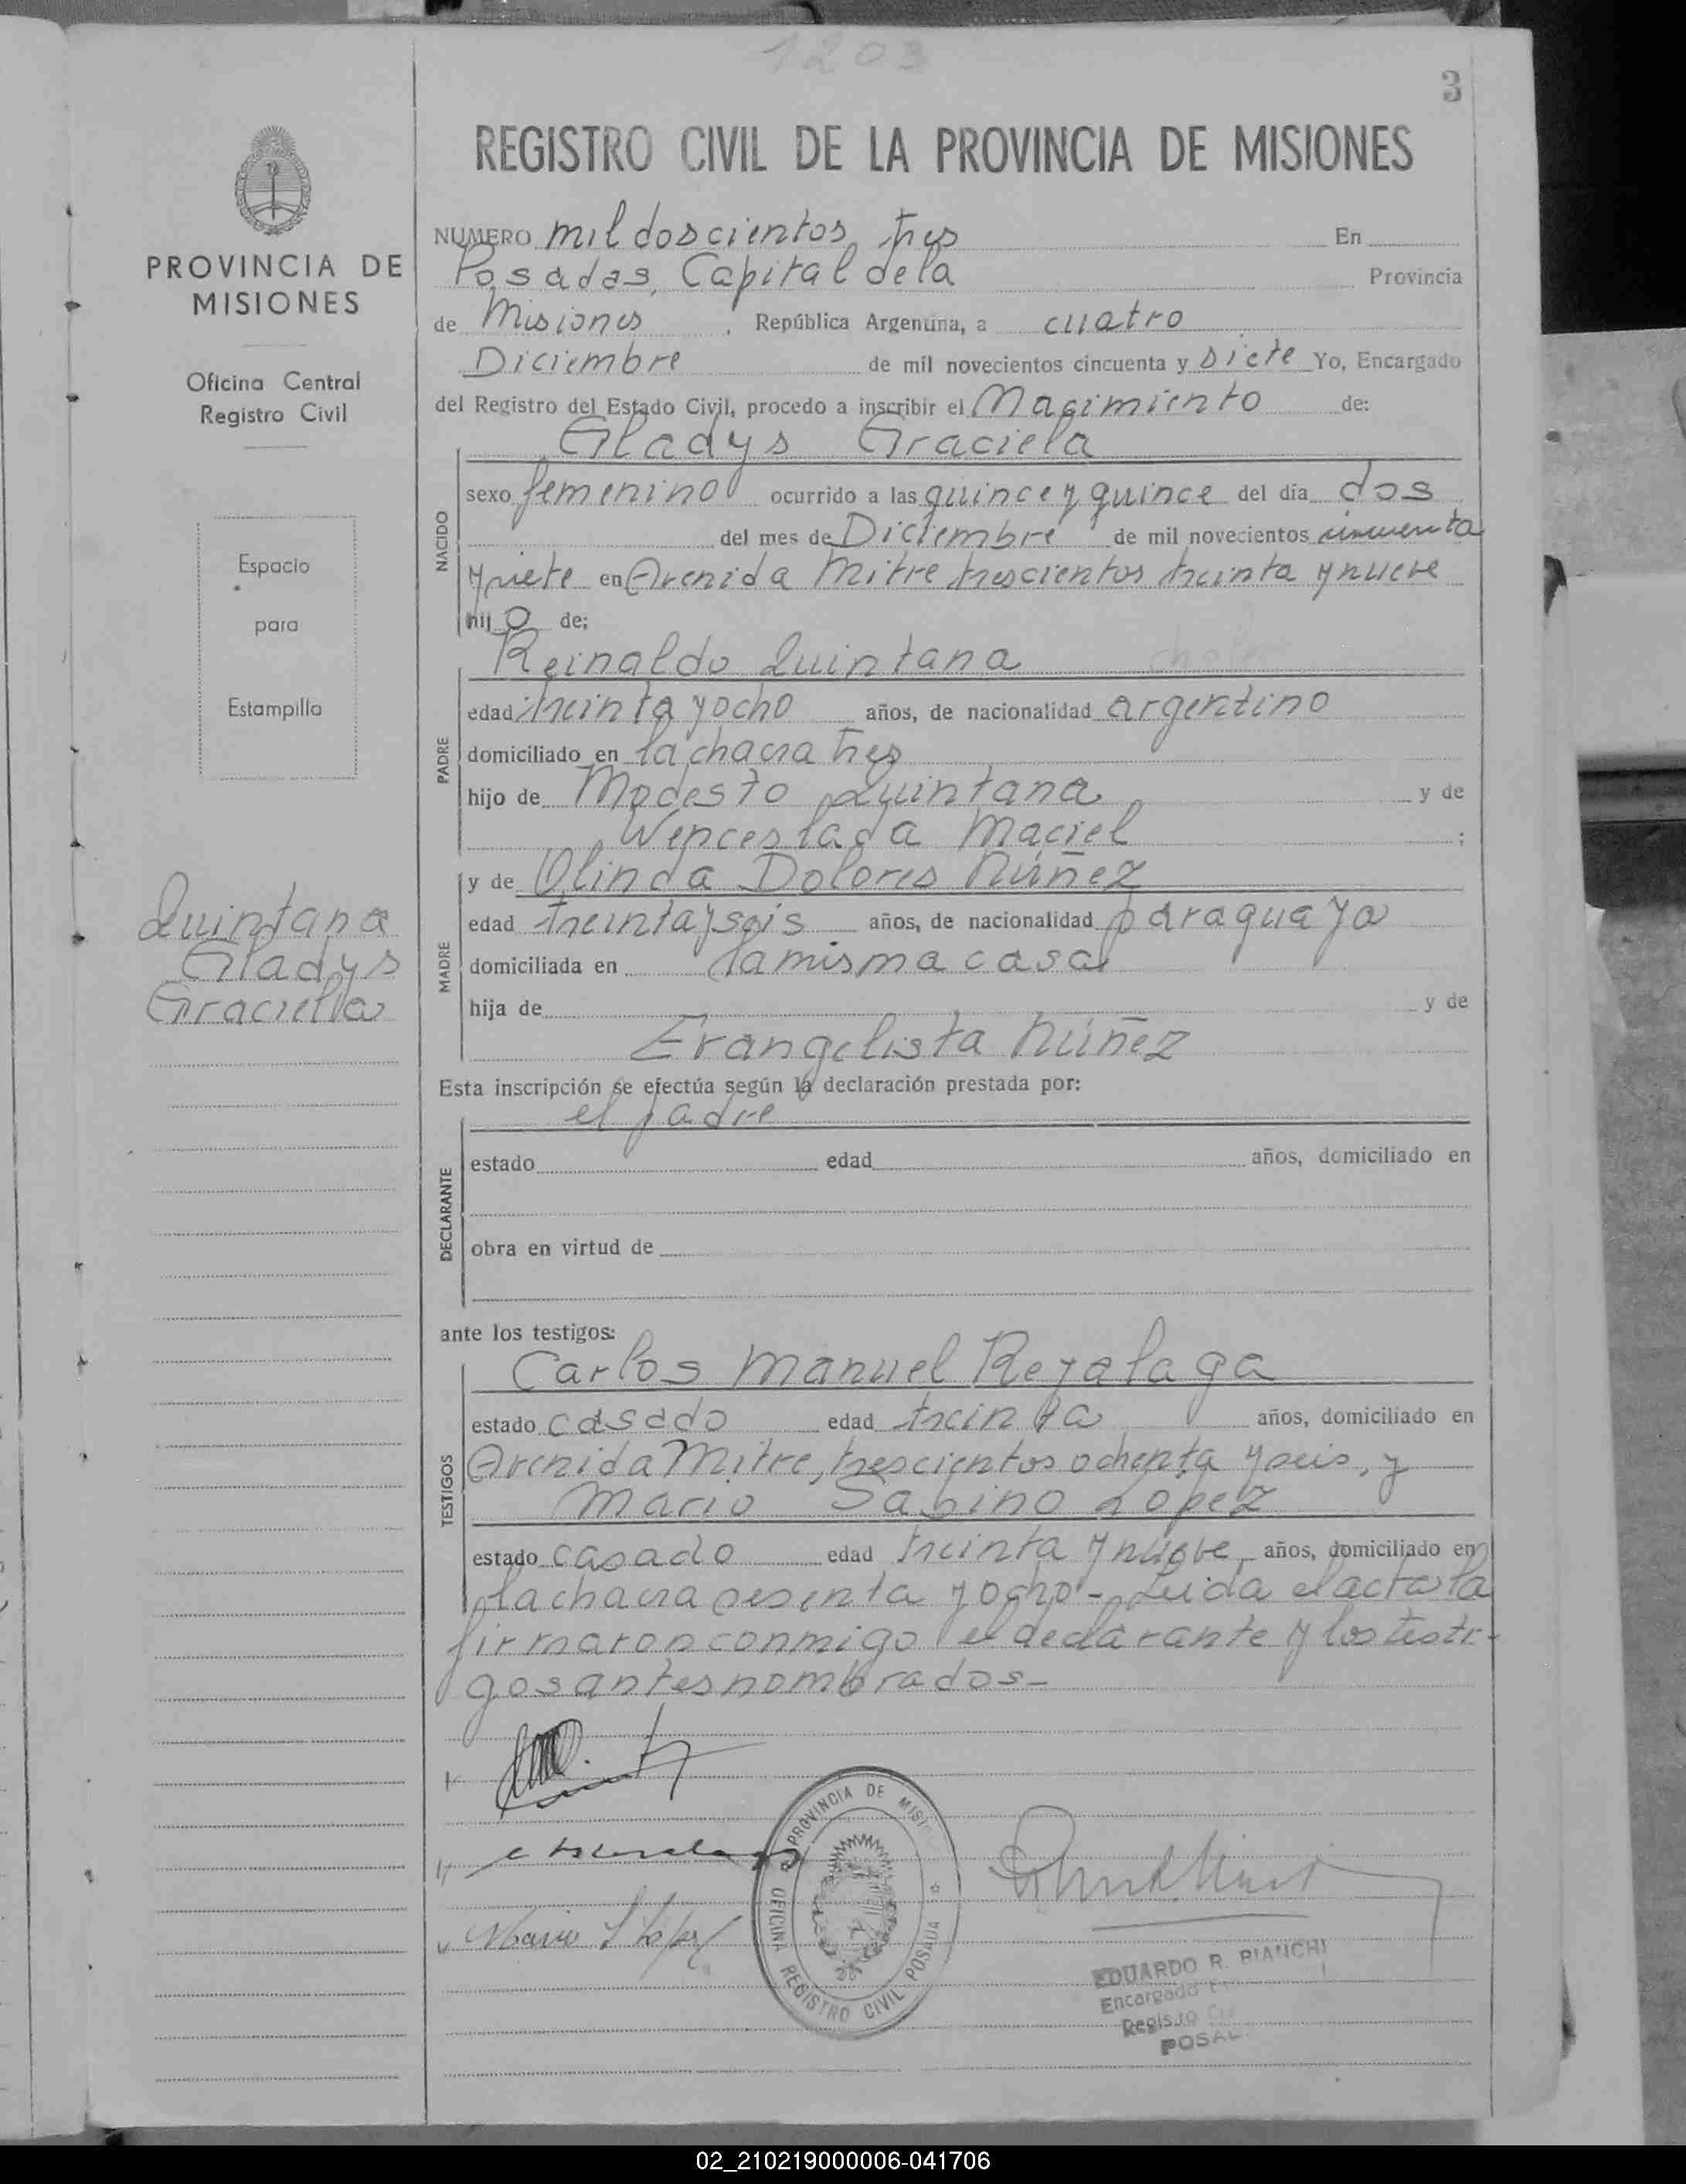 1203
3
REGISTRO CIVIL DE LA PROVINCIA DE MISIONES
PROVINCIA DE
MISIONES
Oficina Central
Registro Civil
Espacio
para
Estampilla
Quintana
Gladys
Graciela
NUMERO mil doscientos tres En
Posadas, Capital de la Provincia
de Misiones, República Argentina, a cuatro
Diciembre de mil novecientos cincuenta y siete Yo, Encargado
del Registro del Estado Civil, procedo a inscribir el Nacimiento de:
Gladys Graciela
NACIDO
sexo femenino ocurrido a las quince y quince del dia dos
del mes de Diciembre de mil novecientos cincuenta
y siete en Avenida Mitre trescientos treinta y nueve
hij a de;
Reinaldo Quintana
PADRE
edad treinta y ocho años, de nacionalidad argentino
domiciliado en la chacra tres
hijo de Modesto Quintana y de
Wenceslada Maciel ;
y de Olinda Dolores Núñez
MADRE
edad treinta y seis años, de nacionalidad paraguaya
domiciliada en la misma casa
hija de y de
Evangelista Núñez
Esta inscripción se efectúa según la declaración prestada por:
el padre
DECLARANTE
estado edad años, domiciliado en
obra en virtud de
ante los testigos:
Carlos Manuel Reyalaga
TESTIGOS
estado casado edad treinta años, domiciliado en
Avenida Mitre, trescientos ochenta y seis, y
Mario Sabino Lopez
estado casado edad treinta y nueve años, domiciliado en
la chacra sesenta y ocho - Leida el acta la
firmaron conmigo el declarante y los testi-
gos antes nombrados-
Mario S López
PROVINCIA DE MISI
OFICINA REGISTRO CIVIL POSADA
EDUARDO R. BIANCHI
Encargado
Registro
POSA
02_210219000006-041706